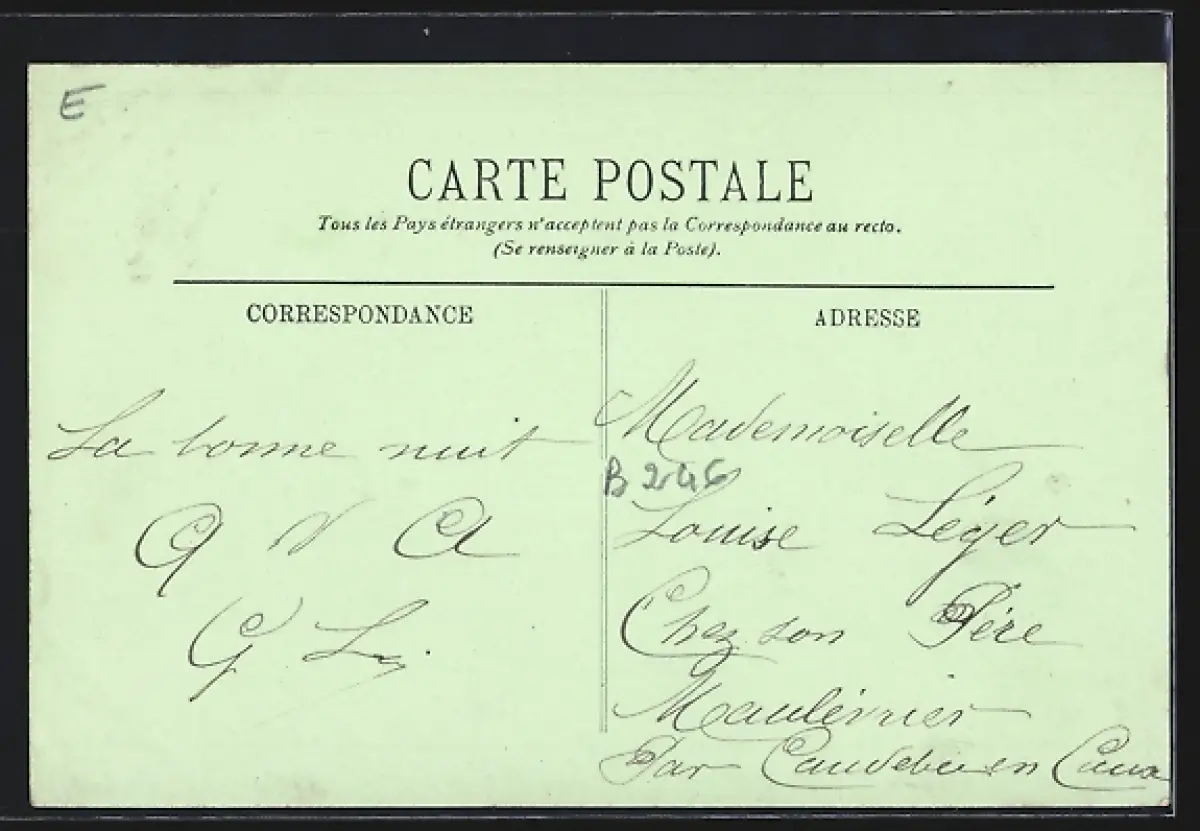 E
CARTE POSTALE
Tous les Pays étrangers n'acceptent pas la Correspondance au recto.
(Se renseigner à la Poste).
CORRESPONDANCE
La bonne nuit
ADRESSE
Mademoiselle
B 246
Louise Léger
Chez son Père
Maulévrier
Par Caudebec en Caux